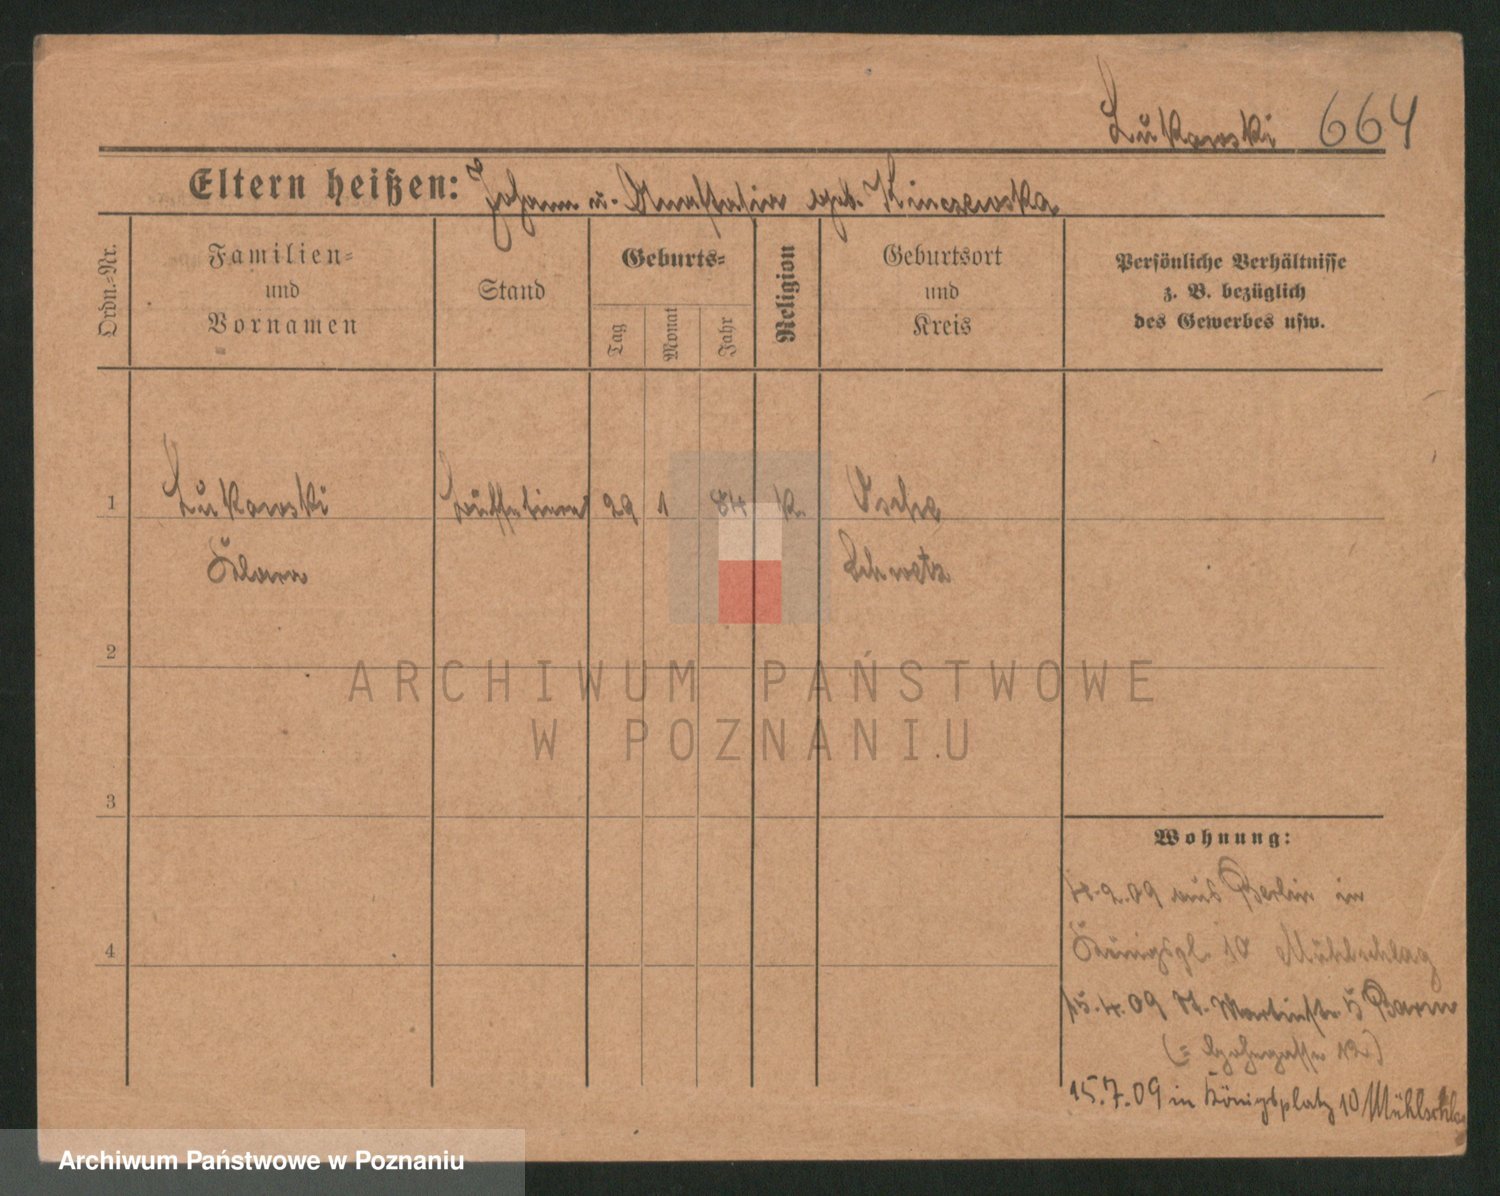 Lukowski 664
Eltern heißen: Johann u. Anastasia geb. Kinczewska
Ordn.-Nr.
Familien-
und
Vornamen
Stand
Geburts-
Tag
Monat
Jahr
Religion
Geburtsort
und
Kreis
Persönliche Verhältnisse
z. B. bezüglich
des Gewerbes usw.
1 Lukowski 29 1 84 k.
Klara Schwetz
2
3
4
Wohnung:
4.2.09 aus Berlin in
Königspl. 10 Mühlschlag
15.4.09 St. Martinstr. 5
15.7.09 in Königsplatz 10 Mühlschlag
ARCHIWUM PAŃSTWOWE
W POZNANIU
Archiwum Państwowe w Poznaniu